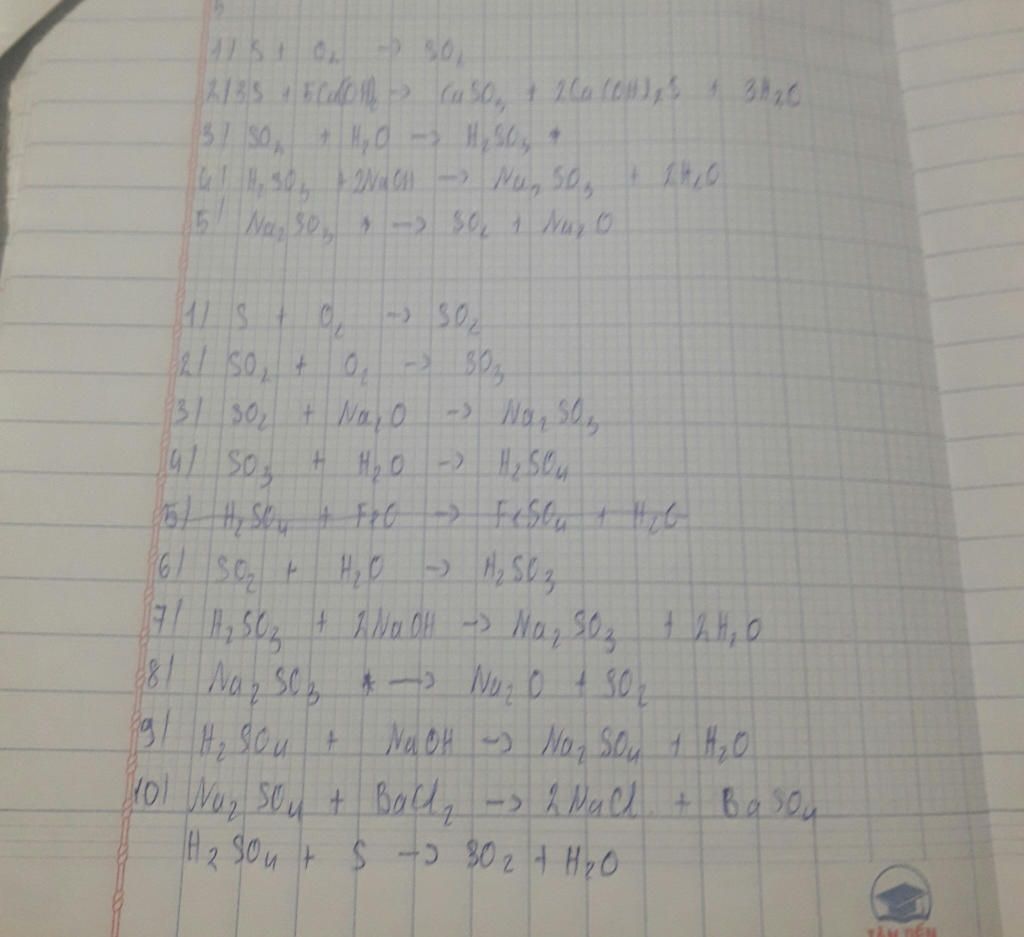 5
1) S + O₂ → SO₂
2) 3S + 5Ca(OH)₂ → CaSO₃ + 2Ca(OH)₂S + 3H₂O
3) SO₂ + H₂O → H₂SO₃
4) H₂SO₃ + 2NaOH → Na₂SO₃ + 2H₂O
5) Na₂SO₃ → SO₂ + Na₂O
1) S + O₂ → SO₂
2) SO₂ + O₂ → SO₃
3) SO₂ + Na₂O → Na₂SO₃
4) SO₃ + H₂O → H₂SO₄
5) H₂SO₄ + FeO → FeSO₄ + H₂O
6) SO₂ + H₂O → H₂SO₃
7) H₂SO₃ + 2NaOH → Na₂SO₃ + 2H₂O
8) Na₂SO₃ → Na₂O + SO₂
9) H₂SO₄ + NaOH → Na₂SO₄ + H₂O
10) Na₂SO₄ + BaCl₂ → 2NaCl + BaSO₄
H₂SO₄ + S → SO₂ + H₂O